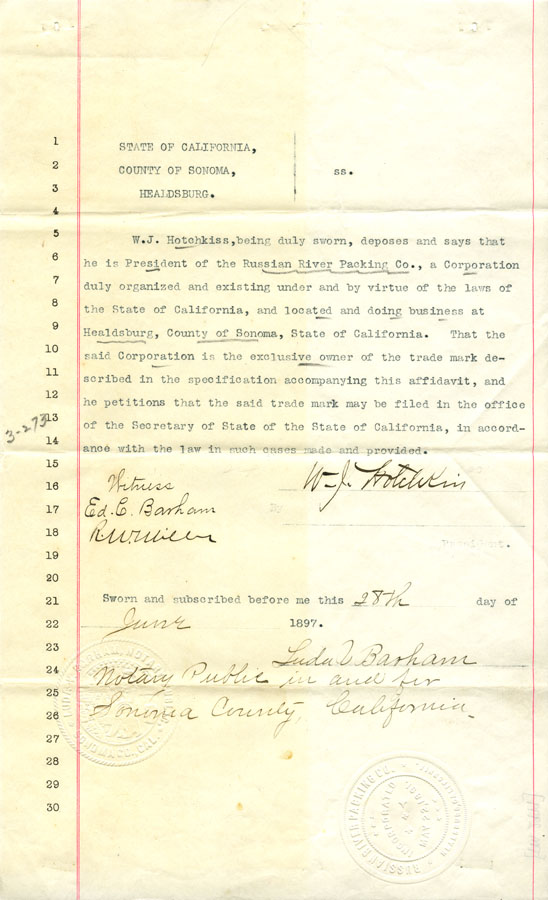 1
2
3
4
5
6
7
8
9
10
11
12
13
14
15
16
17
18
19
20
21
22
23
24
25
26
27
28
29
30
STATE OF CALIFORNIA,
COUNTY OF SONOMA, ss.
HEALDSBURG.
W.J. Hotchkiss,being duly sworn, deposes and says that
he is President of the Russian River Packing Co., a Corporation
duly organized and existing under and by virtue of the laws of
the State of California, and located and doing business at
Healdsburg, County of Sonoma, State of California. That the
said Corporation is the exclusive owner of the trade mark de-
scribed in the specification accompanying this affidavit, and
he petitions that the said trade mark may be filed in the office
of the Secretary of State of the State of California, in accord-
ance with the law in such cases made and provided.
3-273
W-J. Hotchkiss
Witness
Ed. C. Barham
R.W. Miller
President.
Sworn and subscribed before me this 28th day of
June 1897.
Barham
Notary Public in and for
Sonoma County, California.
RUSSIAN RIVER PACKING CO.
INCORPORATED
MAY